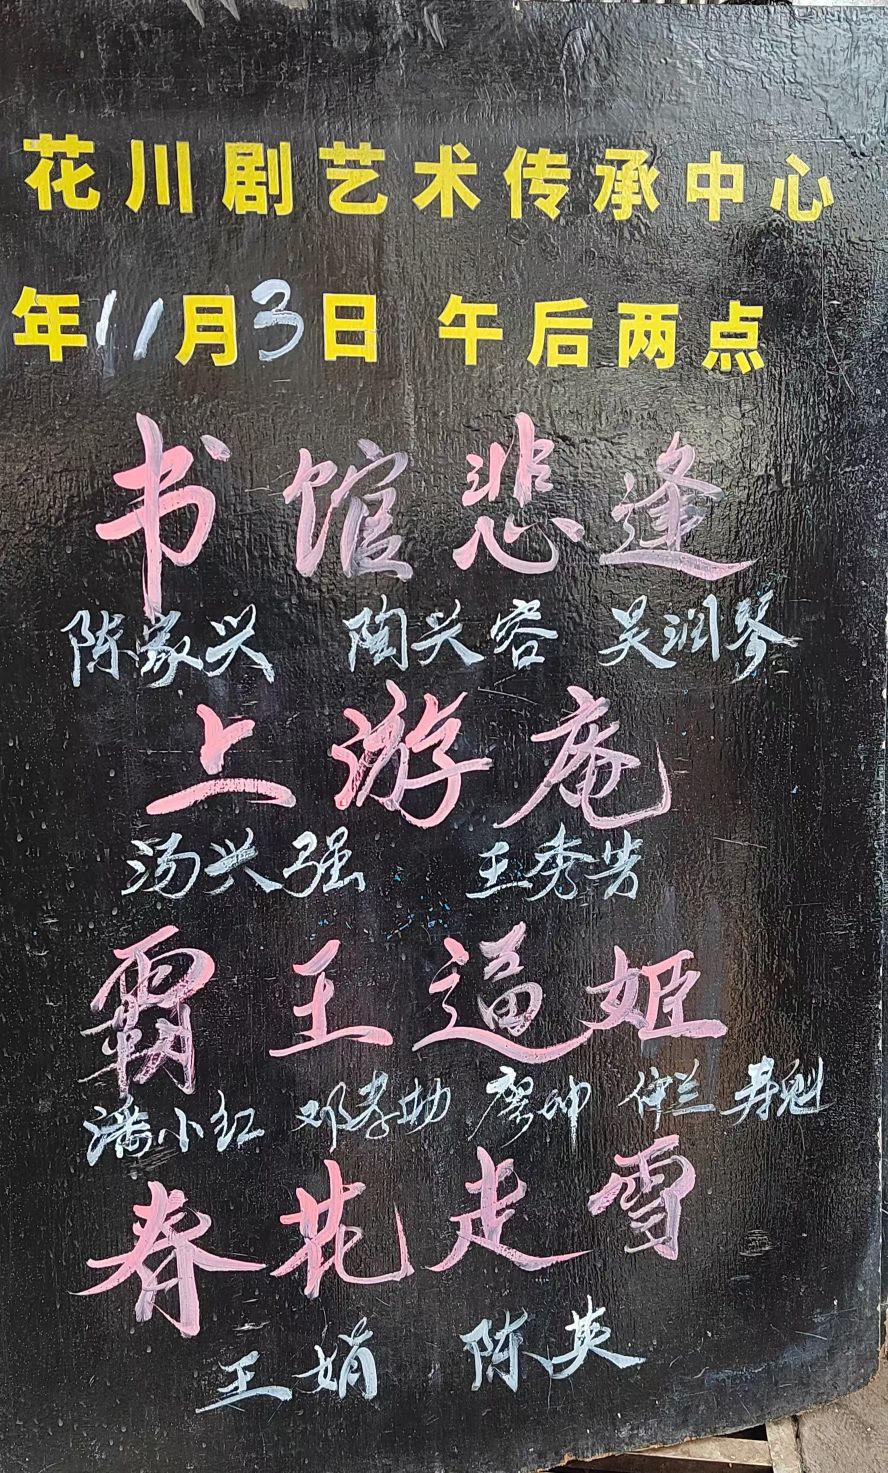 花川剧艺术传承中心
年11月3日 午后两点
书馆悲逢
陈家兴 陶兴容 吴润琴
上游庵
汤兴强 王秀芳
霸王逼姬
潘小红 邓孝勋 廖坤 仲兰 寿魁
春花走雪
王娟 陈英